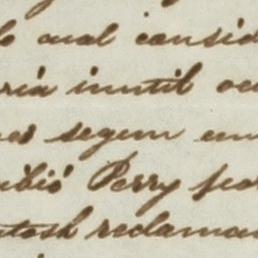 lo cual consid
ria inutil oc
es segun un
ubió Perry for
ntosh reclaman